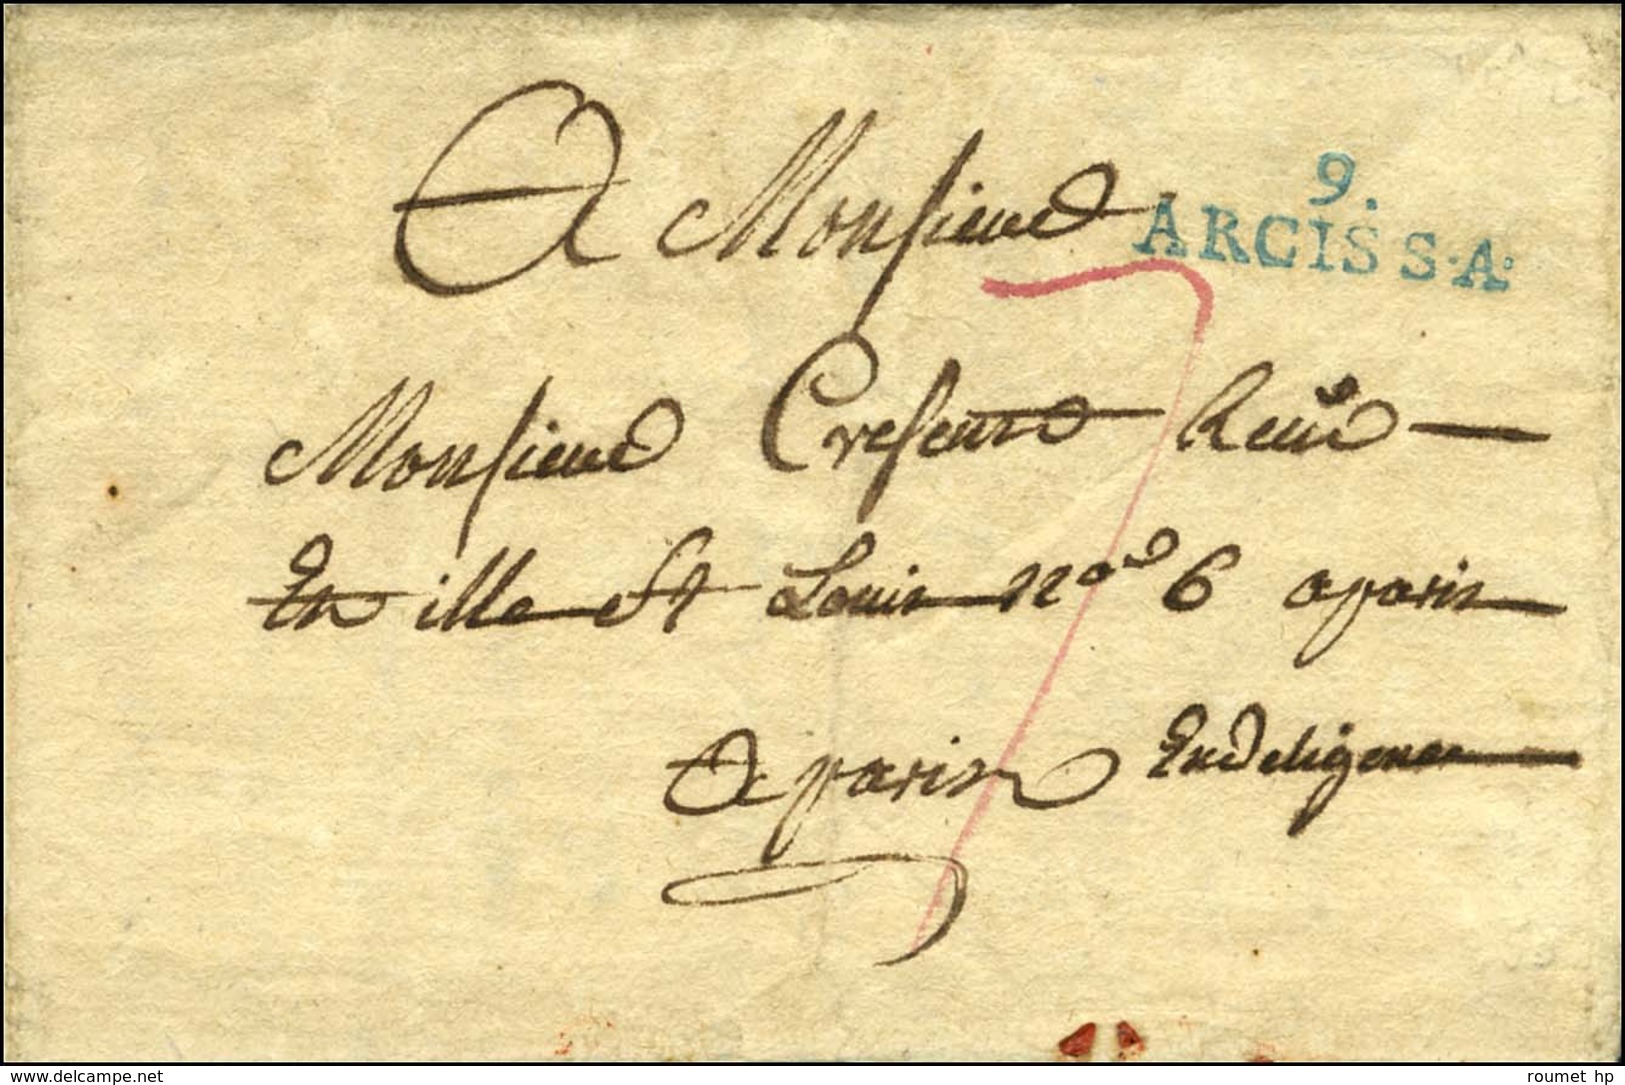 A Monsieur
9.
ARCIS S.A.
7
Monsieur Cresent
En ille St Louis no 6 a paris
a paris En deligence
www.delcampe.net
roumet hp